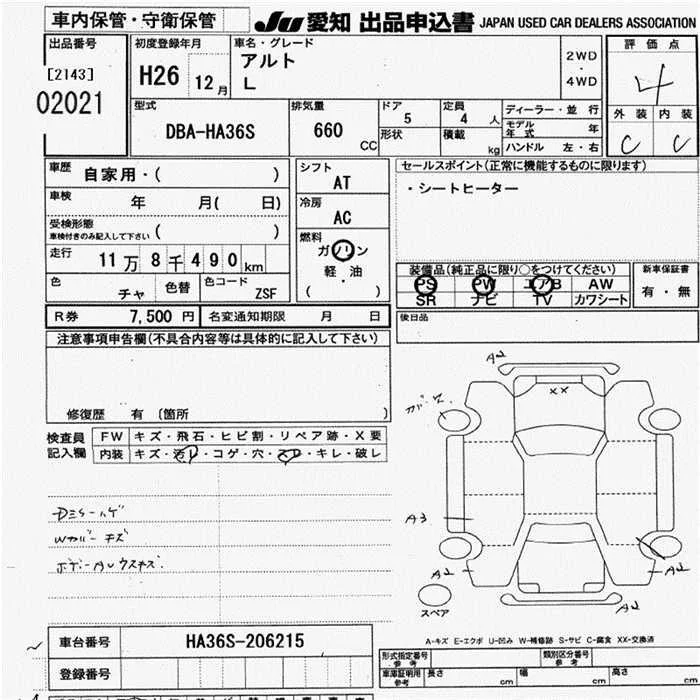 車内保管・守衛保管
JU 愛知 出品申込書 JAPAN USED CAR DEALERS ASSOCIATION
出品番号
[2143]
02021
初度登録年月
H26 12月
車名・グレード
アルト
L
2WD
・
4WD
評価点
4
外装 内装
C C
型式
DBA-HA36S
排気量
660 CC
ドア
5
形状
定員
4 人
積載 kg
ディーラー・並行
モデル年式 年
ハンドル 左・右
車歴
自家用・( )
車検
年 月( 日)
受検形態
車検付きのみ記入して下さい ( )
走行
11万8千490km
色
チャ
色替
色コード
ZSF
シフト
AT
冷房
AC
燃料
ガソリン
軽・油
( ・ )
セールスポイント(正常に機能するものに限ります)
・シートヒーター
装備品(純正品に限り○をつけてください)
PS PW エアB AW
SR ナビ TV カワシート
新車保証書
有・無
後日品
R券 7,500円 名変通知期限 月 日
注意事項申告欄(不具合内容等は具体的に記入して下さい)
修復歴 有 〔箇所 〕
検査員
記入欄
FW キズ・飛石・ヒビ割・リペア跡・X要
内装 キズ・汚レ・コゲ・穴・スレ・キレ・破レ
Wカバーキズ
ボデーAUウスキズ.
A2
XX
A3
A2
A2
A2
スペア
A-キズ E-エクボ U-凹み W-補修跡 S-サビ C-腐食 XX-交換済
車台番号 HA36S-206215
登録番号
形式指定番号
参考
類別区分番号
参考
車庫証明用
参考
長さ cm 幅 cm 高さ cm